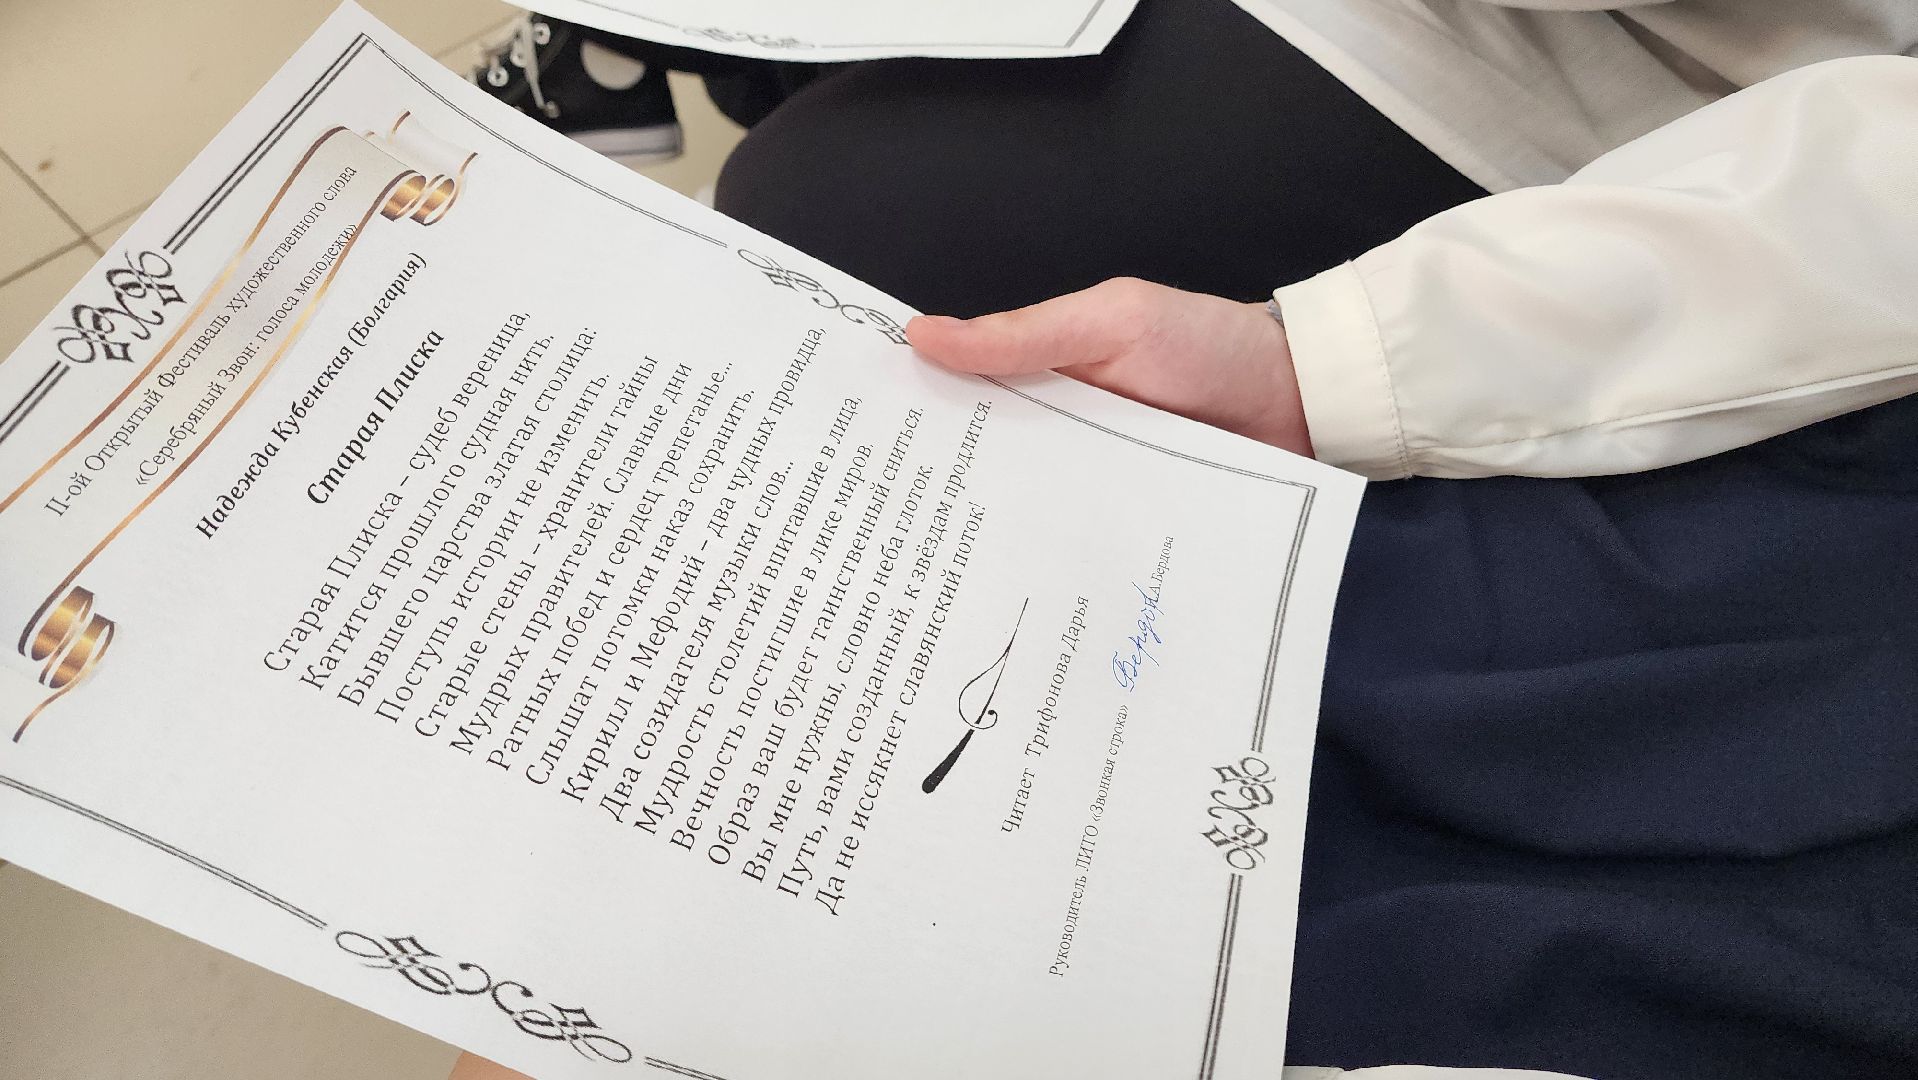 II-ой Открытый Фестиваль художественного слова
«Серебряный Звон: голоса молодежи»
Надежда Кубенская (Болгария)
Старая Плиска
Старая Плиска – судеб вереница,
Катится прошлого судная нить.
Бывшего царства златая столица:
Поступь истории не изменить.
Старые стены – хранители тайны
Мудрых правителей. Славные дни
Ратных побед и сердец трепетанье...
Слышат потомки наказ сохранить.
Кирилл и Мефодий – два чудных провидца,
Два созидателя музыки слов...
Мудрость столетий впитавшие в лица,
Вечность постигшие в лике миров.
Образ ваш будет таинственный сниться.
Вы мне нужны, словно неба глоток.
Путь, вами созданный, к звёздам продлится.
Да не иссякнет славянский поток!
Читает Трифонова Дарья
Руководитель ЛИТО «Звонкая строка» Бердова Л.Бердова